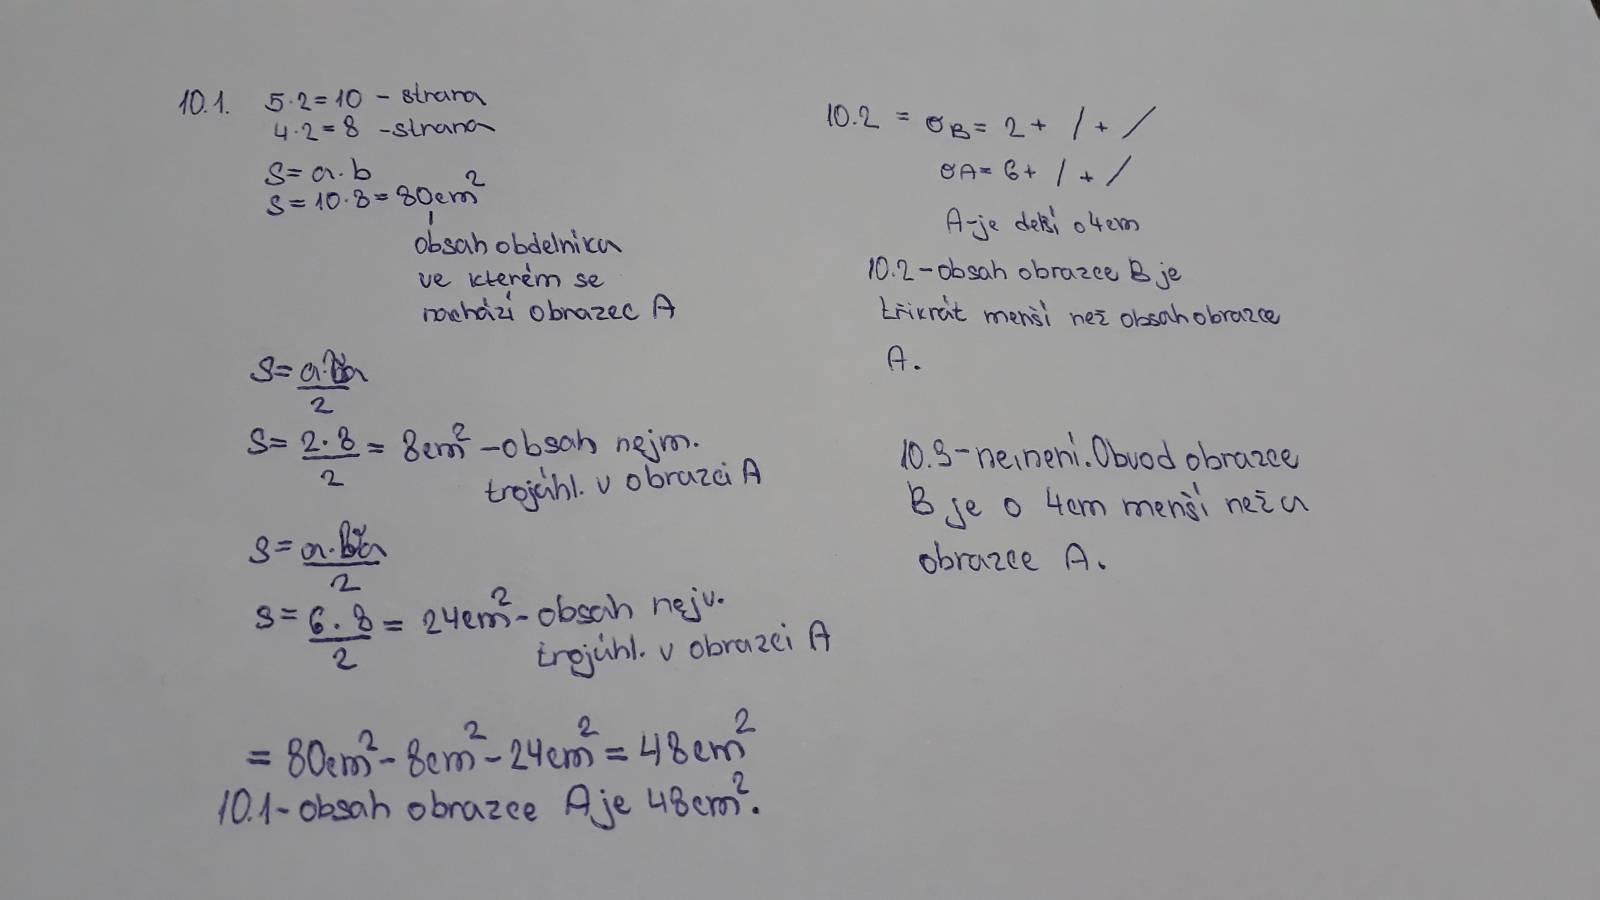 10.1. 5·2=10 - strana
4·2=8 - strana
S=a·b
S=10·8=80cm²
obsah obdelnika
ve kterém se
nachází obrazec A
S= a·va
2
S= 2·8 = 8cm² - obsah nejm.
2
trojúhl. v obrazci A
S= a·va
2
S= 6·8 = 24cm² - obsah nejv.
2
trojúhl. v obrazci A
= 80cm² - 8cm² - 24cm² = 48cm²
10.1 - obsah obrazce A je 48cm².
10.2 = oB= 2 + / + /
oA= 6 + / + /
A-je delší o 4cm
10.2 - obsah obrazce B je
třikrát menší než obsah obrazce
A.
10.3 - ne, není. Obvod obrazce
B je o 4cm menší než u
obrazce A.